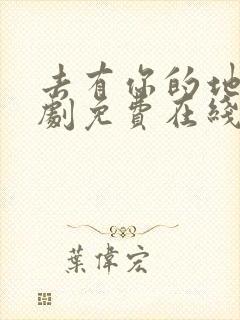 去有你的地
劇免費在綫
葉偉宏